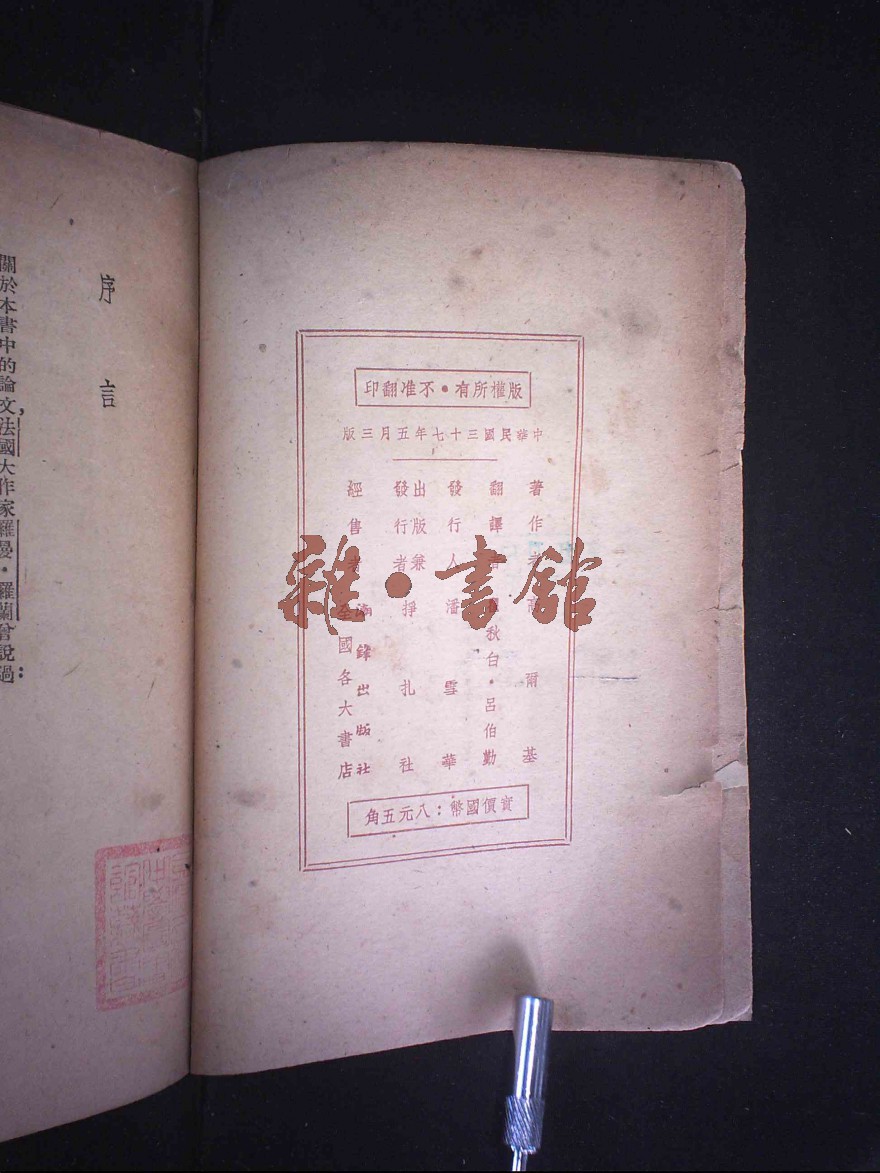 版權所有・不准翻印
中華民國三十七年五月三版
著作者 爾基
翻譯 秋白・呂伯勤
發行人 潘雪華
出版兼發行者 掙扎社
鋒出版社
經售者 全國各大書店
實價國幣：八元五角
序言
關於本書中的論文，法國大作家羅曼・羅蘭曾說過：
雜・書館